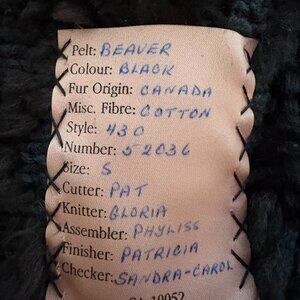 Pelt: BEAVER
Colour: BLACK
Fur Origin: CANADA
Misc. Fibre: COTTON
Style: 430
Number: 52036
Size: S
Cutter: PAT
Knitter: GLORIA
Assembler: PHYLISS
Finisher: PATRICIA
Checker: SANDRA-CAROL
10052